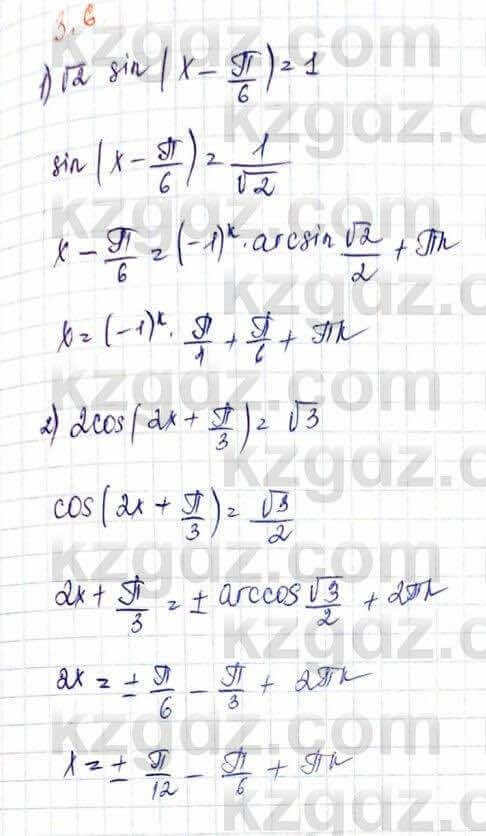 3.6
1) √2 sin(x - π/6) = 1
sin(x - π/6) = 1/√2
x - π/6 = (-1)ᵏ · arcsin √2/2 + πk
x = (-1)ᵏ · π/4 + π/6 + πk
2) 2cos(2x + π/3) = √3
cos(2x + π/3) = √3/2
2x + π/3 = ± arccos √3/2 + 2πk
2x = ± π/6 - π/3 + 2πk
x = ± π/12 - π/6 + πk
kzgdz.com